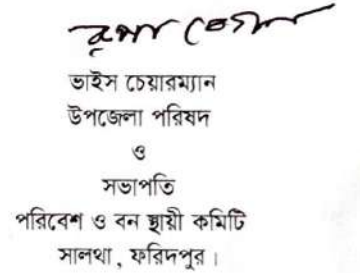 রূপা বেগম
ভাইস চেয়ারম্যান
উপজেলা পরিষদ
ও
সভাপতি
পরিবেশ ও বন স্থায়ী কমিটি
সালথা, ফরিদপুর।